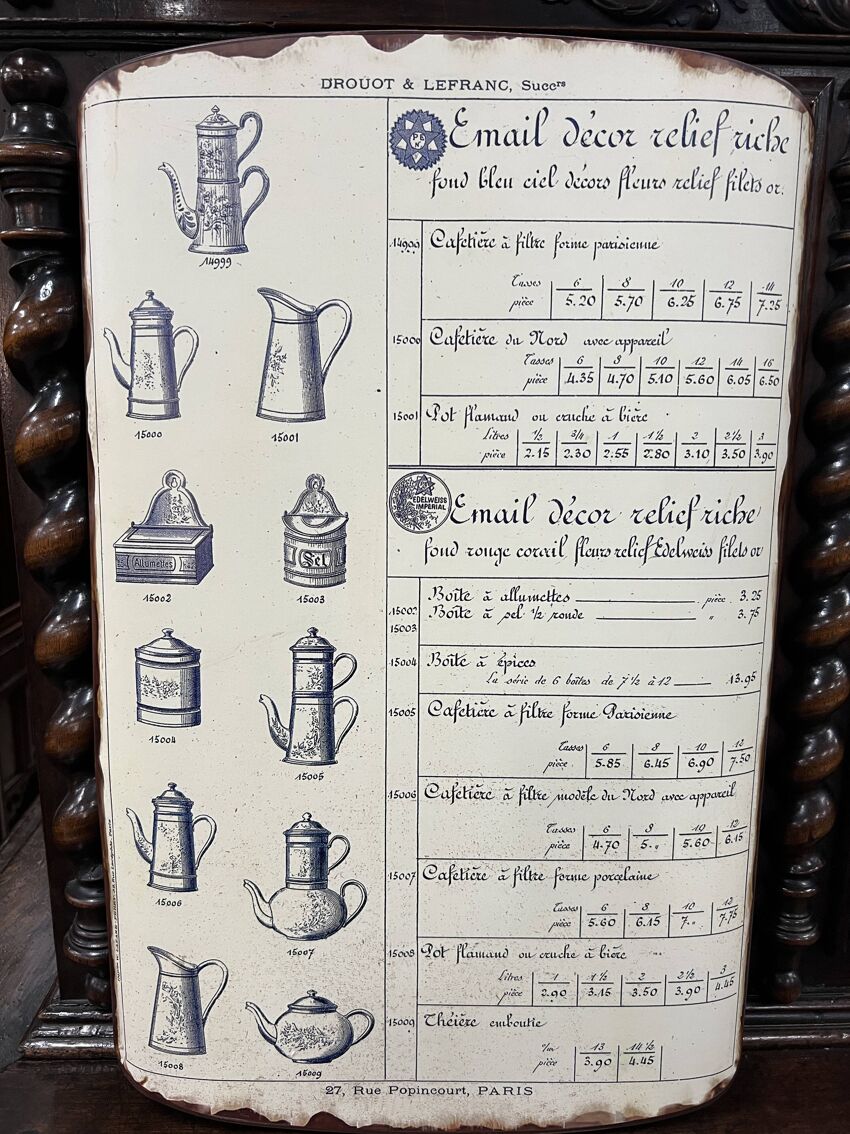 DROUOT & LEFRANC, Succrs
14999
15000
15001
15002
Allumettes
15003
Sel
15004
15005
15006
15007
15008
15009
Email décor relief riche
fond bleu ciel décors fleurs relief filets or.
14999 Cafetière à filtre forme parisienne
Tasses 6 8 10 12 14
pièce 5.20 5.70 6.25 6.75 7.25
15000 Cafetière du Nord avec appareil
Tasses 6 8 10 12 14 16
pièce 4.35 4.70 5.10 5.60 6.05 6.50
15001 Pot flamand ou cruche à bière
Litres 1/2 3/4 1 1 1/2 2 2 1/2 3
pièce 2.15 2.30 2.55 2.80 3.10 3.50 3.90
EDELWEISS
IMPERIAL
Email décor relief riche
fond rouge corail fleurs relief Edelweiss filets or
15002 Boîte à allumettes pièce 3.25
15003 Boîte à sel 1/2 ronde " 3.75
15004 Boîte à épices
La série de 6 boîtes de 7 1/2 à 12 13.95
15005 Cafetière à filtre forme Parisienne
Tasses 6 8 10 12
pièce 5.85 6.45 6.90 7.50
15006 Cafetière à filtre modèle du Nord avec appareil
Tasses 6 8 10 12
pièce 4.70 5.. 5.60 6.15
15007 Cafetière à filtre forme porcelaine
Tasses 6 8 10 12
pièce 5.60 6.15 7.. 7.75
15008 Pot flamand ou cruche à bière
Litres 1 1 1/2 2 2 1/2 3
pièce 2.90 3.15 3.50 3.90 4.45
15009 Théière emboutie
13 14 1/2
pièce 3.90 4.45
27, Rue Popincourt, PARIS